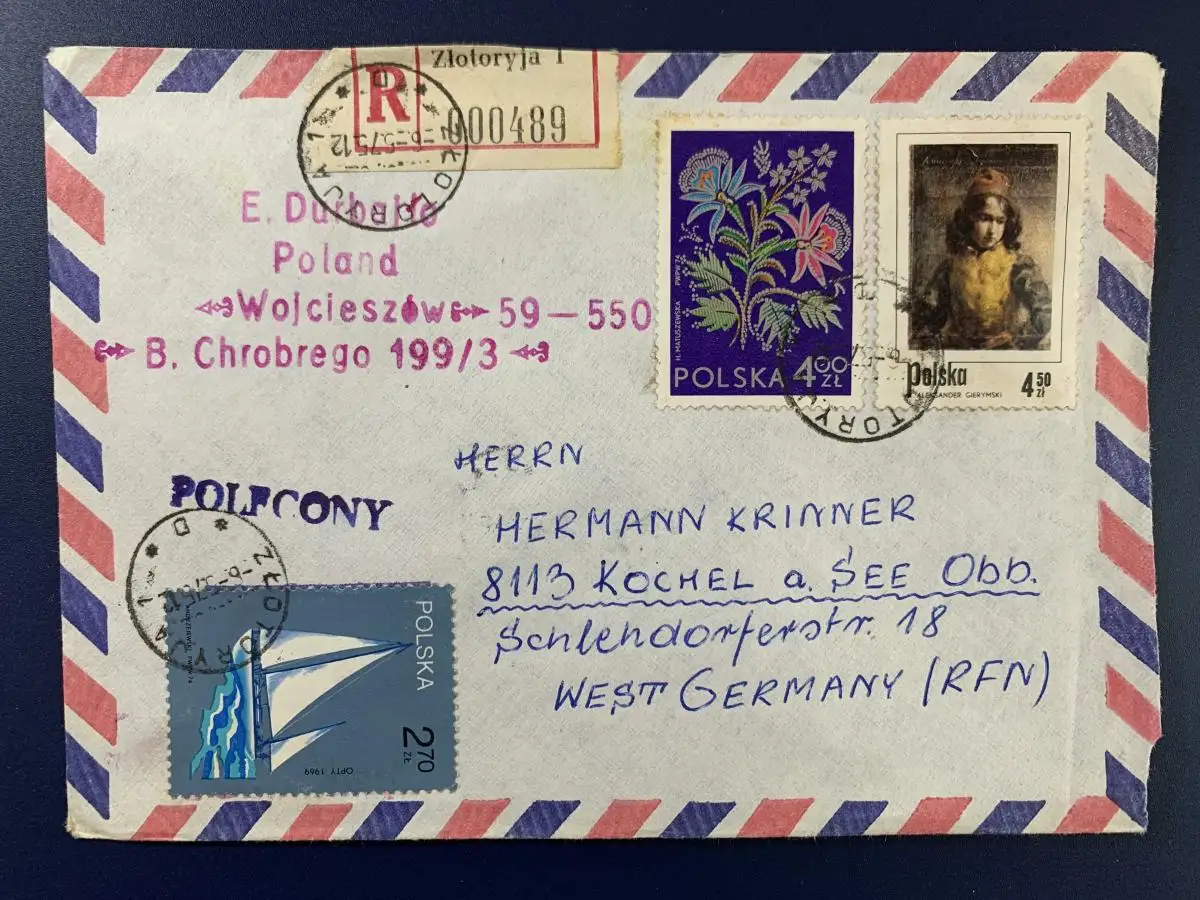 Złotoryja 1
R
000489
ZŁOTORYJA 1
D
-6.-5.75.12
E. Durbajło
Poland
Wojcieszów 59-550
B. Chrobrego 199/3
H. MATUSZEWSKA PWPW 74
POLSKA 4.00 ZŁ
Polska 4 50 zł
ALEKSANDER GIERYMSKI
POLECONY
HERRN
HERMANN KRINNER
8113 KOCHEL a. SEE Obb.
Schlehdorferstr. 18
WEST GERMANY (RFN)
ZŁOTORYJA 1
D
POLSKA
2 70 ZŁ
OPTY 1969